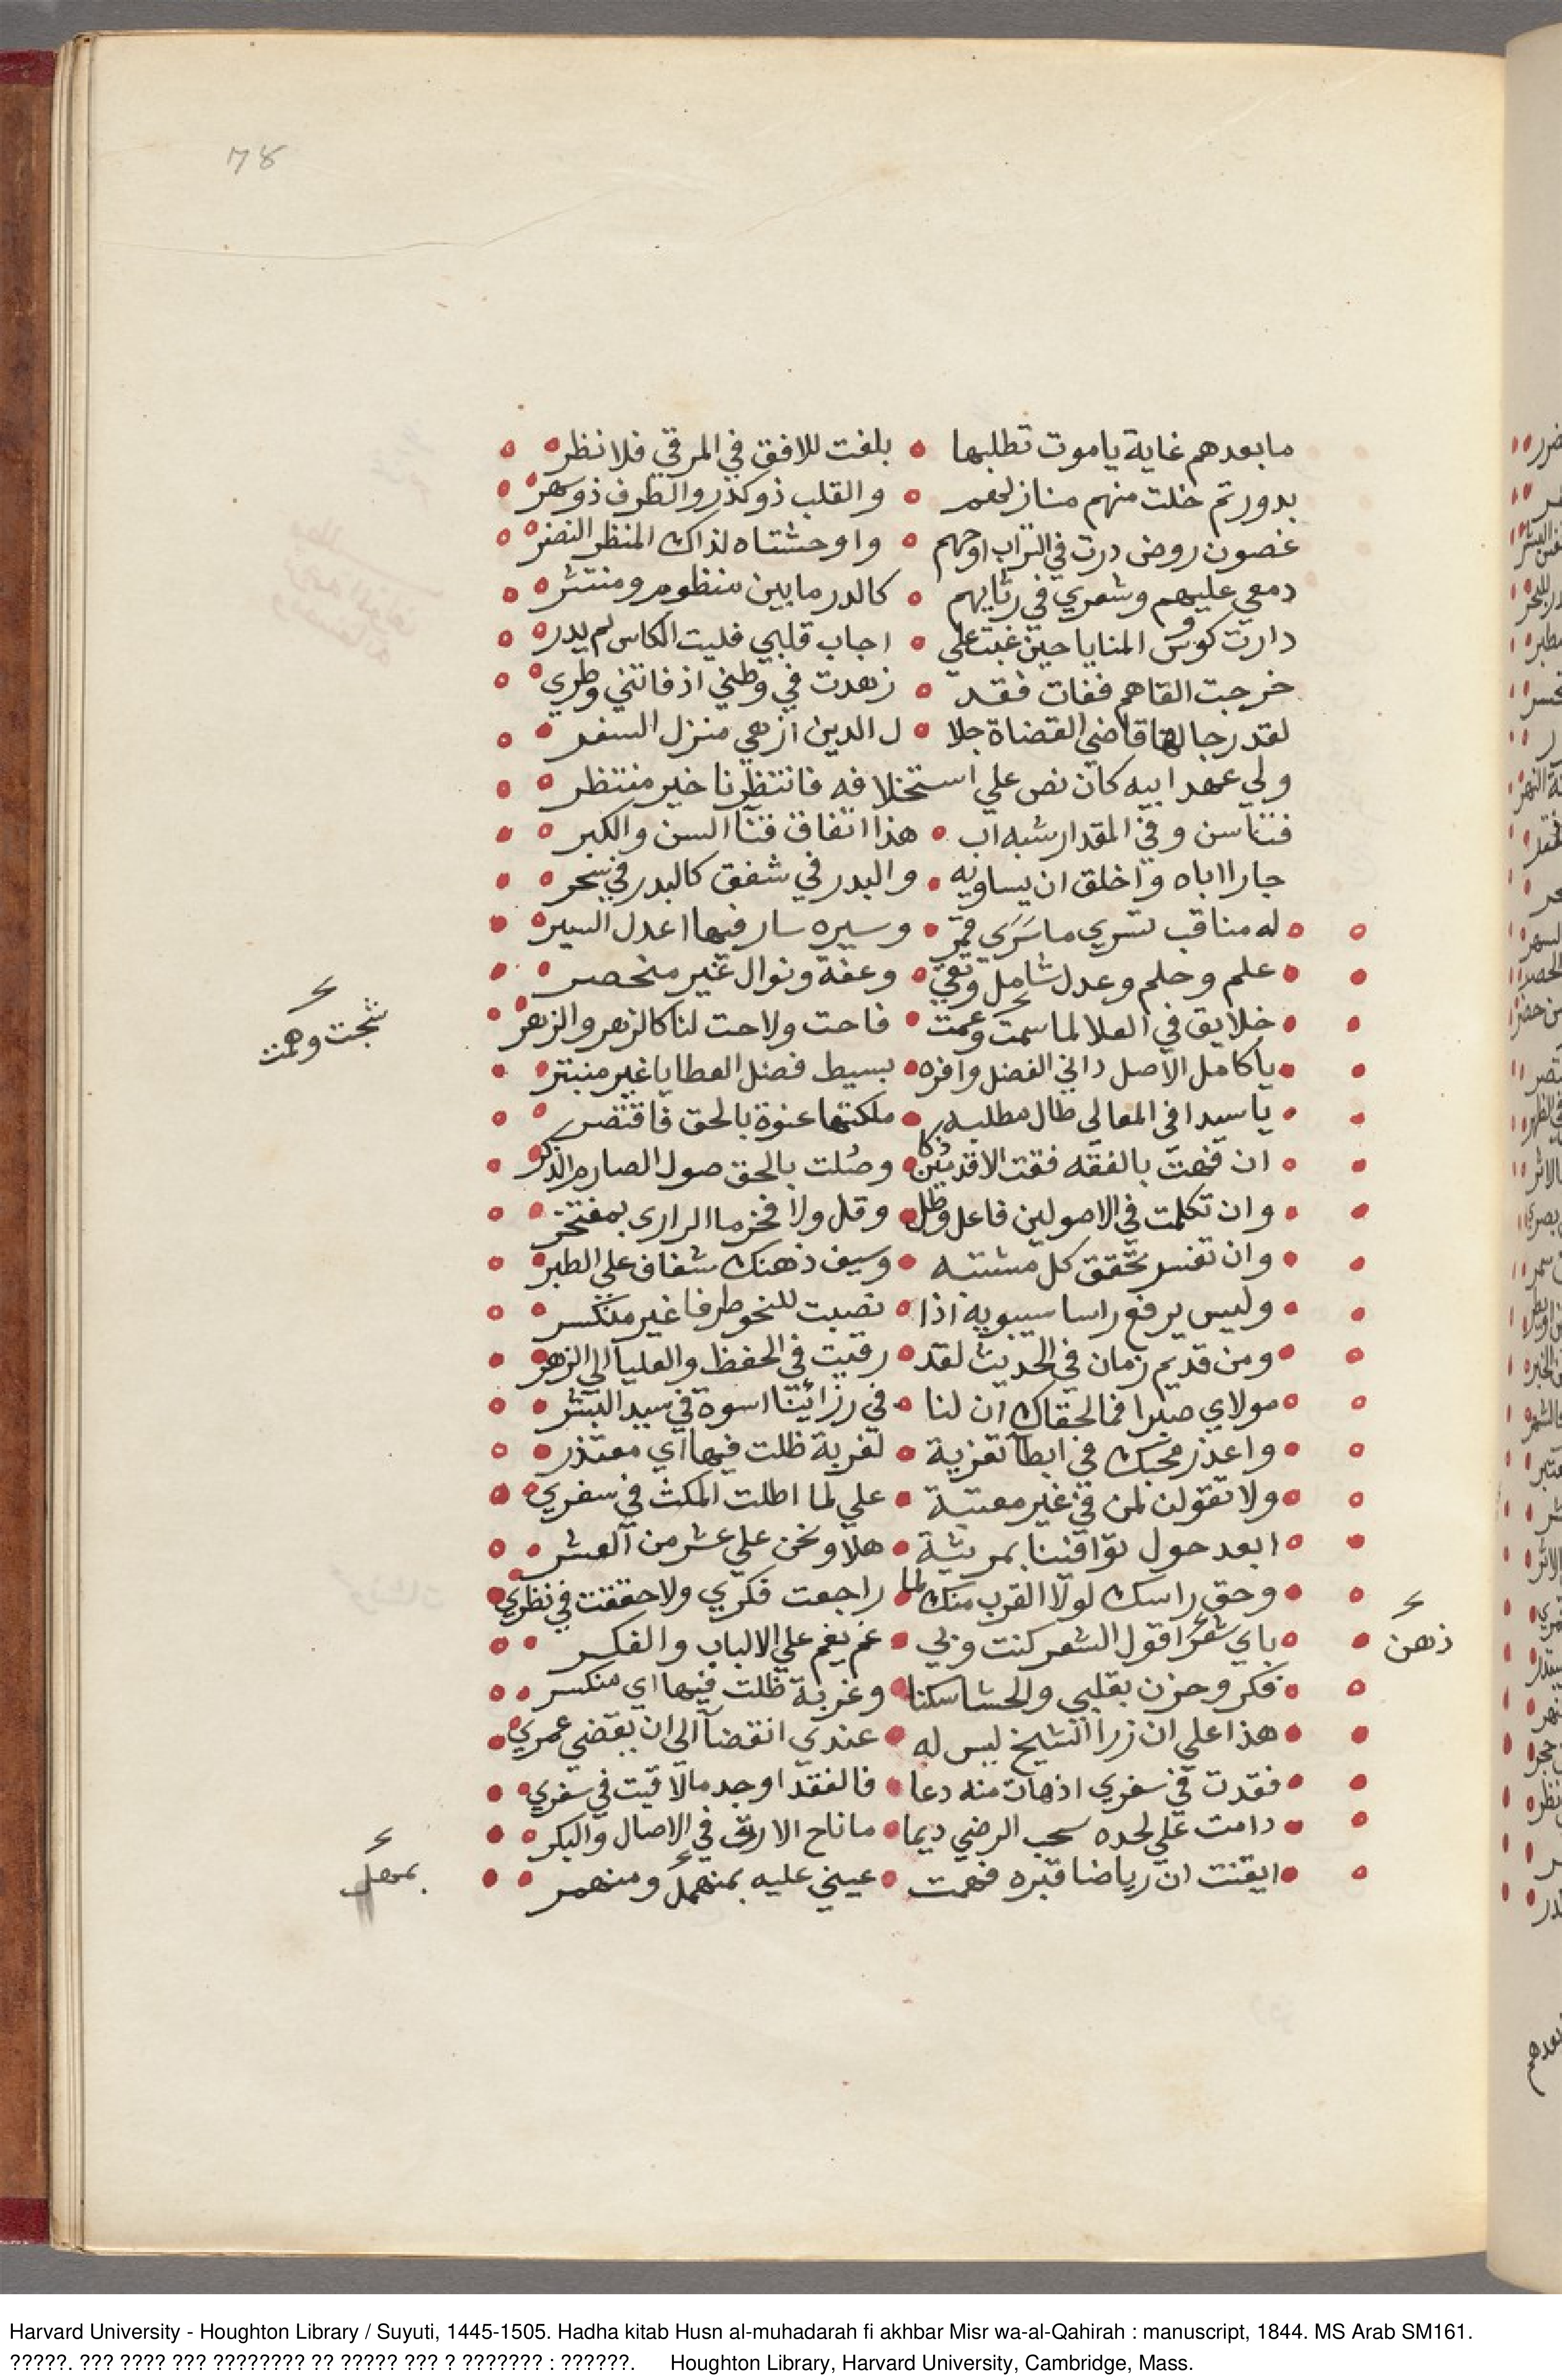 78
ما بعدهم غاية ياموت تطلبها بلغت للافق في المرقي فلا نظر
بدور تم خلت منهم منازلهم والقلب ذو كدر والطرف ذو سهر
غصون روض ذرت في التراب اوجههم واوحشتاه لذاك المنظر النضر
دمعي عليهم وشعري في رثايهم كالدر ما بين منظوم ومنتثر
دارت كوس المنايا حين غبت علي اجاب قلبي فليت الكاس لم يدر
خرجت القاهم ففات فقد زهدت في وطني اذ فاتني وطري
لقد رجا لها قاضي القضاة جلا ل الدين ازهي منزل السفر
ولي عهد ابيه كان نص علي استخلافه فانتظرنا خير منتظر
فتنا سن وفي المقدار شبه اب هذا اتفاق فتنا السن والكبر
جارا اباه واخلق ان يساويه والبدر في شفق كالبدر في سحر
له مناقب تسري ما سَرَي قمر وسيره سار فيها اعدل السير
علم وحلم وعدل شامل وتقي وعفة ونوال غير منحصر
خلايق في العلا لما سمت وعمت فاحت ولاحت لنا كالزهر والزهر
شجت وهمت
يا كامل الاصل داني الفضل وافره بسيط فضل العطايا غير منبتر
يا سيدا في المعالي طال مطلبه ملكتها عنوة بالحق فاقتصر
ان فهت بالفقه فقت الاقدمين ذكا وصلت بالحق صول الصارم الذكر
وان تكلمت في الاصولين فاعل وطل وقل ولا فخر ما الرازى بمفتخر
وان تفسر تحقق كل مشتبه وسيف ذهنك شفاف علي الطبر
وليس يرفع راسا سيبويه اذا نصبت للنحو طرفا غير منكسر
ومن قديم زمان في الحديث لقد رقيت في الحفظ والعليا الي الزهر
مولاي صبرا فما الحقاك ان لنا في رزائينا اسوة في سيد البشر
واعذر محبك في ابطآ تعزية لغربة ظلت فيها اي معتذر
ولا تقولن لمن في غير معتبة علي لما اطلت المكث في سفري
ابعد حول توافينا بمرثية هلا ونحن علي عشر من العشر
وحق راسك لولا القرب منك لما راجعت فكري ولا حققت في نظري
باي شعر اقول الشعر كنت ولي غم يغم علي الالباب والفكر
ذهن
فكر وحزن بقلبي والحشا سكنا وغربة ظلت فيها اي منكسر
هذا علي ان زرا الشيخ ليس له عندى انقضآ الي ان ينقضي عمري
فقدت في سفري اذ مات منه دعا فالفقد اوجد ما لاقيت في سفري
دامت علي لحده سحب الرضي ديما ما ناح الارق في الاصال والبكر
ايقنت ان رياضا قبره فهمت عيني عليه بمنهمل ومنهمر
بمنهل
Harvard University - Houghton Library / Suyuti, 1445-1505. Hadha kitab Husn al-muhadarah fi akhbar Misr wa-al-Qahirah : manuscript, 1844. MS Arab SM161.
?????. ??? ???? ??? ???????? ?? ????? ??? ? ??????? : ??????. Houghton Library, Harvard University, Cambridge, Mass.